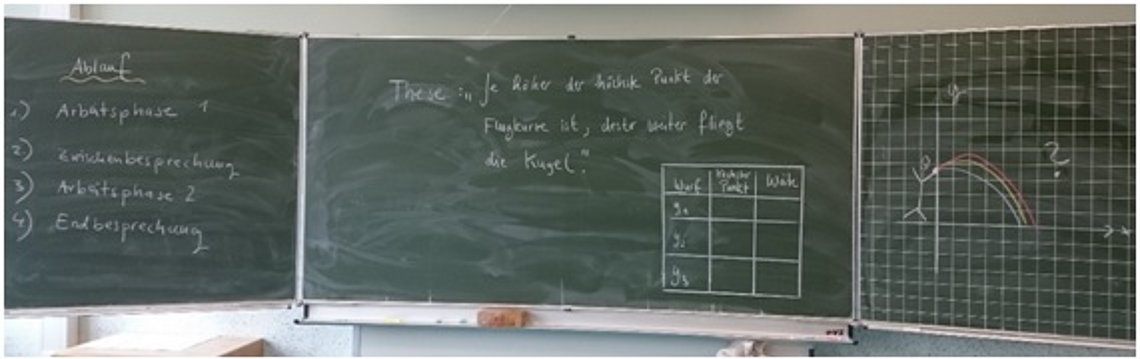 Ablauf
1) Arbeitsphase 1
2) Zwischenbesprechung
3) Arbeitsphase 2
4) Endbesprechung
These: „Je höher der höchste Punkt der
Flugkurve ist, desto weiter fliegt
die Kugel."
Wurf höchster Punkt Weite
y₁
y₂
y₃
y
?
x